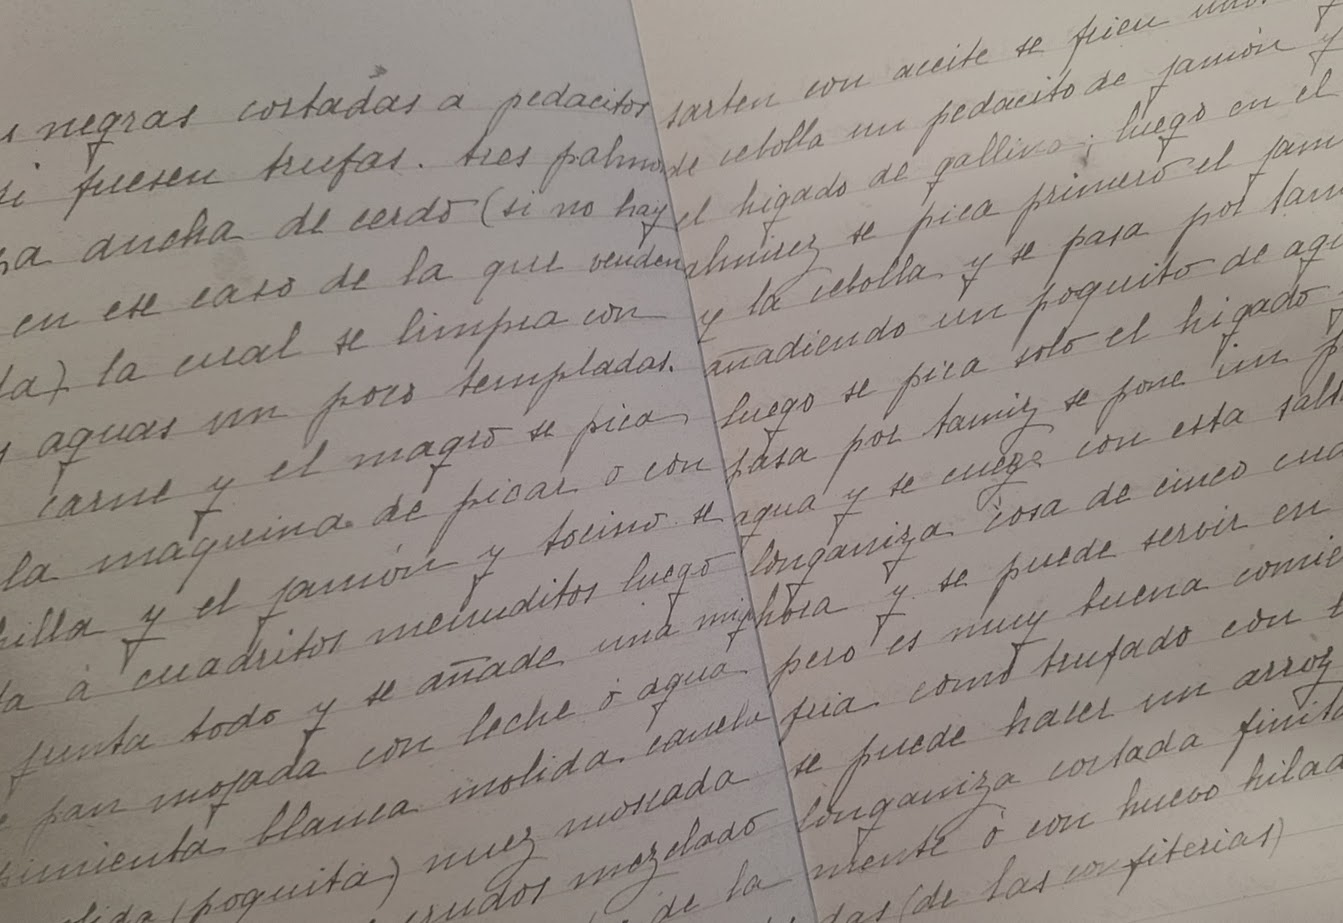 negras cortadas a pedacitos
si fuesen trufas. tres palmos
ancha de cerdo (si no hay
en ese caso de la que venden
la cual se limpia con
aguas un poco templadas.
carne y el magro se pica
la maquina de picar o con
y el jamón y tocino se
á cuadritos menuditos luego
junta todo y se añade una
pan mojada con leche ó agua
pimienta blanca molida canela
(poquita) nuez moscada
crudos mezclado
de la
sarten con aceite se frien
de cebolla un pedacito de jamón y
el higado de gallina; luego en el
almirez se pica primero el
y la cebolla y se pasa por
añadiendo un poquito de
luego se pica solo el higado
pasa por tamiz se pone un
agua y se cueze con esta
longaniza cosa de cinco
hora y se puede servir en
pero es muy buena
fria como trufado con
se puede hacer un arroz
longaniza cortada
mente ó con huevo
(de las confiterias)